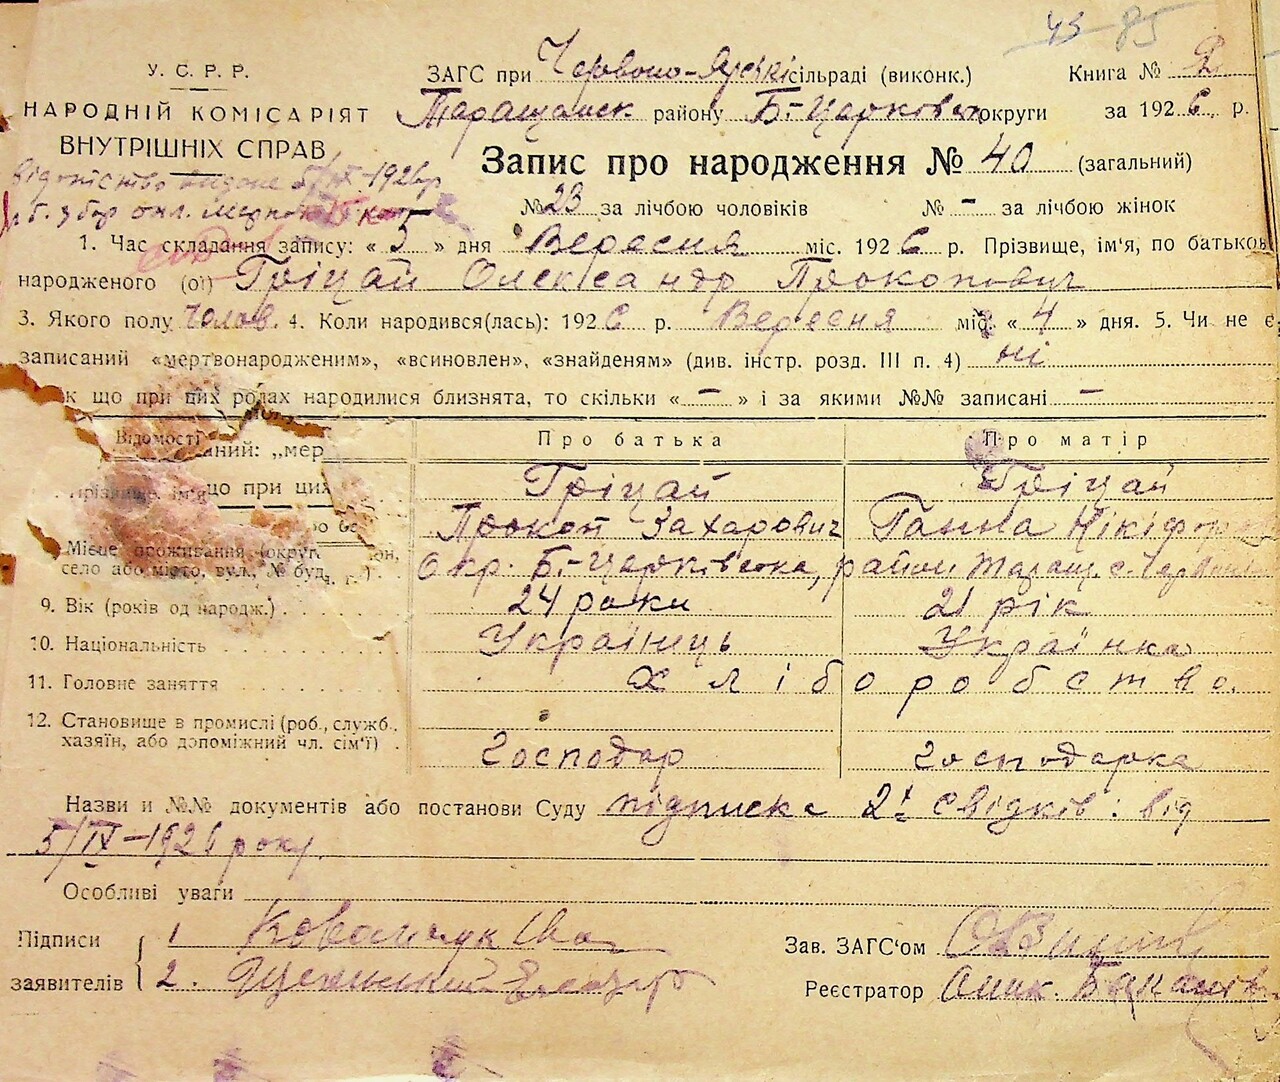 43-85
У. С. Р. Р.
НАРОДНІЙ КОМІСАРІЯТ
ВНУТРІШНІХ СПРАВ
ЗАГС при Червоно-Ярській сільраді (виконк.) Книга № 2
Таращанск. району Б.-Церковськ округи за 1926 р.
Запис про народження № 40 (загальний)
видане 5/IX-1926 р
№ 23 за лічбою чоловіків № - за лічбою жінок
1. Час складання запису: « 5 » дня Вересня міс. 1926 р. Прізвище, ім'я, по батькові
народженого (ої) Гріцай Олександр Прокопович
3. Якого полу чолов. 4. Коли народився(лась): 1926 р. Вересня міс. « 4 » дня. 5. Чи не є
записаний «мертвонародженим», «всиновлен», «знайденям» (див. інстр. розд. III п. 4) ні
к що при цих родах народилися близнята, то скільки « - » і за якими №№ записані -
Відомості Про батька Про матір
аний: „мер
Прізвище, ім'я Гріцай Гріцай
що при цих
Прокоп Захарович Ганна Нікіфор
Місце проживання (округ,
село або місто, вул., № буд. Окр. Б.-Церківська, район Таращ. с.
9. Вік (років од народж.) 24 роки 21 рік
10. Національність Українець Українка
11. Головне заняття Хліборобство.
12. Становище в промислі (роб., служб.,
хазяїн, або допоміжний чл. сім'ї) Господар господарка
Назви и №№ документів або постанови Суду підписка 2х свідків: від
5/IX-1926 року.
Особливі уваги
Підписи 1 Ковальчук
заявителів 2.
Зав. ЗАГС'ом
Реєстратор